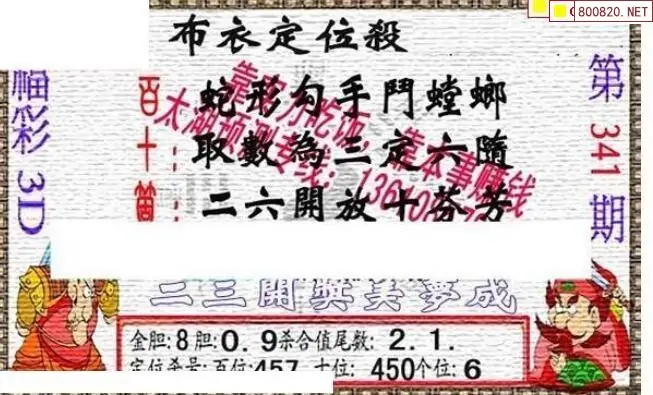 800820.NET
布衣定位殺
福彩3D
第341期
百：蛇形勾手鬥螳螂
十：取數為三定六隨
二六開放十芬芳
靠实力吃饭，靠本事赚钱
太湖预测专线：
二三開獎美夢成
金胆:8胆:0.9杀合值尾数:2.1.
定位杀号:百位:457十位:450个位:6